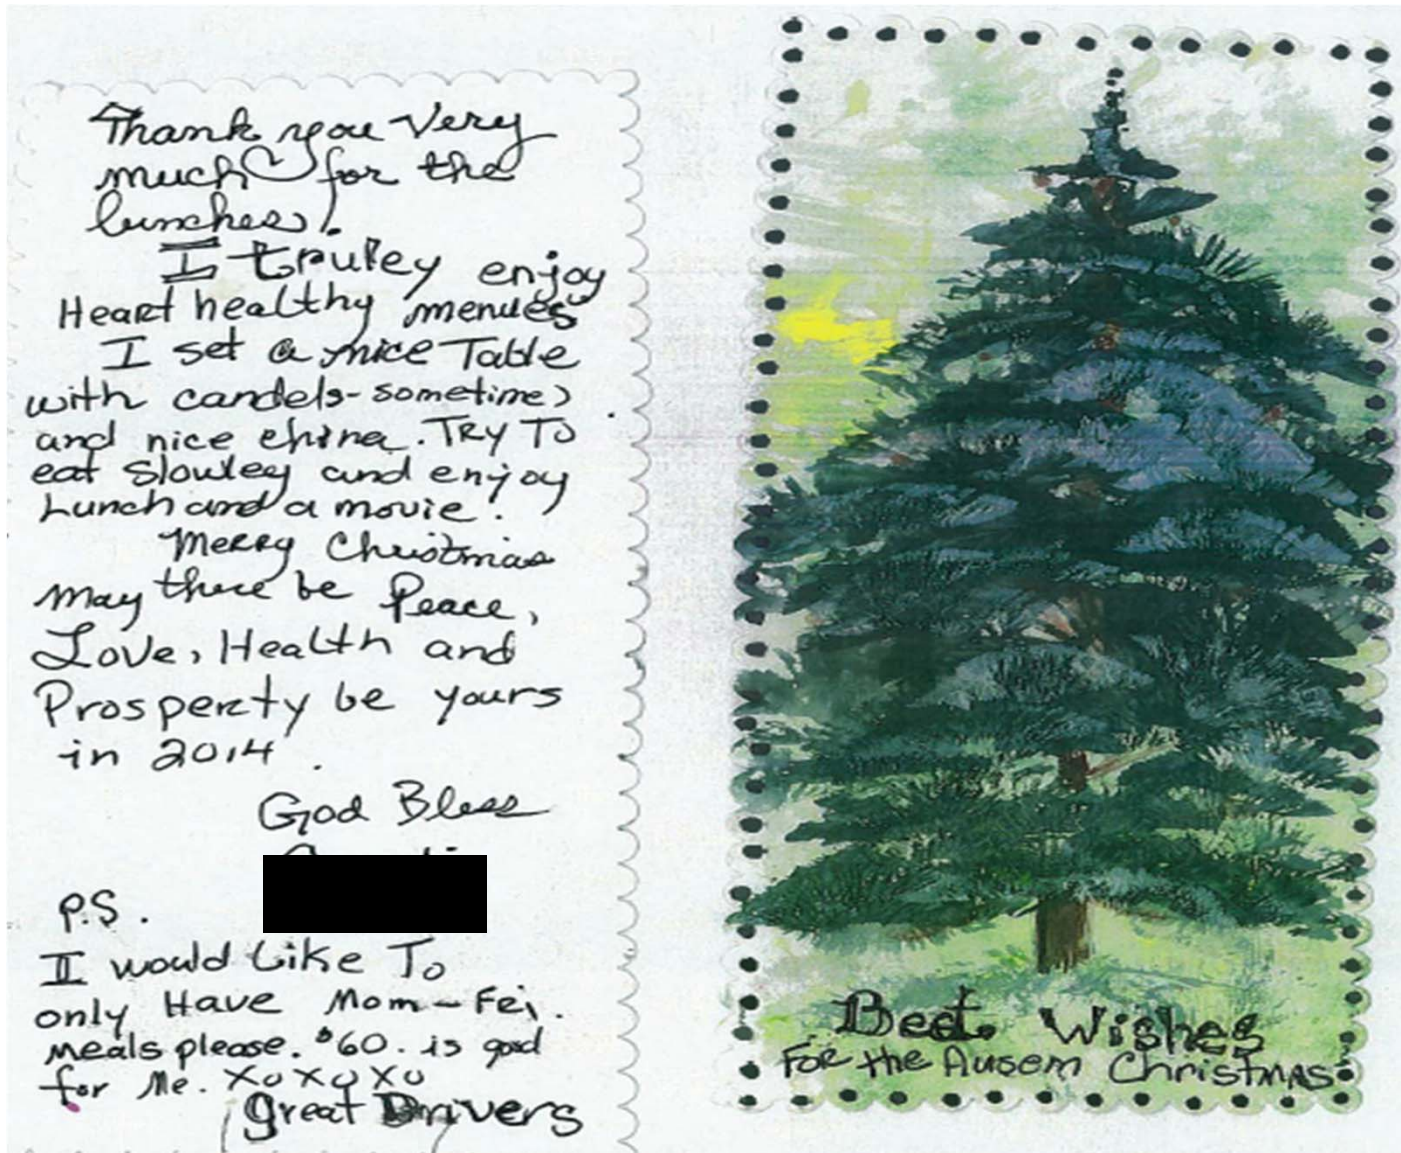 Thank you Very
much for the
lunches!
I truley enjoy
Heart healthy menues
I set a nice Table
with candels-sometimes
and nice china. TRY TO
eat slowley and enjoy
Lunch and a movie.
Merry Christmas
May there be Peace,
Love, Health and
Prosperty be yours
in 2014.
God Bless
P.S.
I would Like To
only Have Mom-Fri.
Meals please. $60. is good
for Me. XOXOXO
Great Drivers
Best Wishes
For the Ausem Christmas